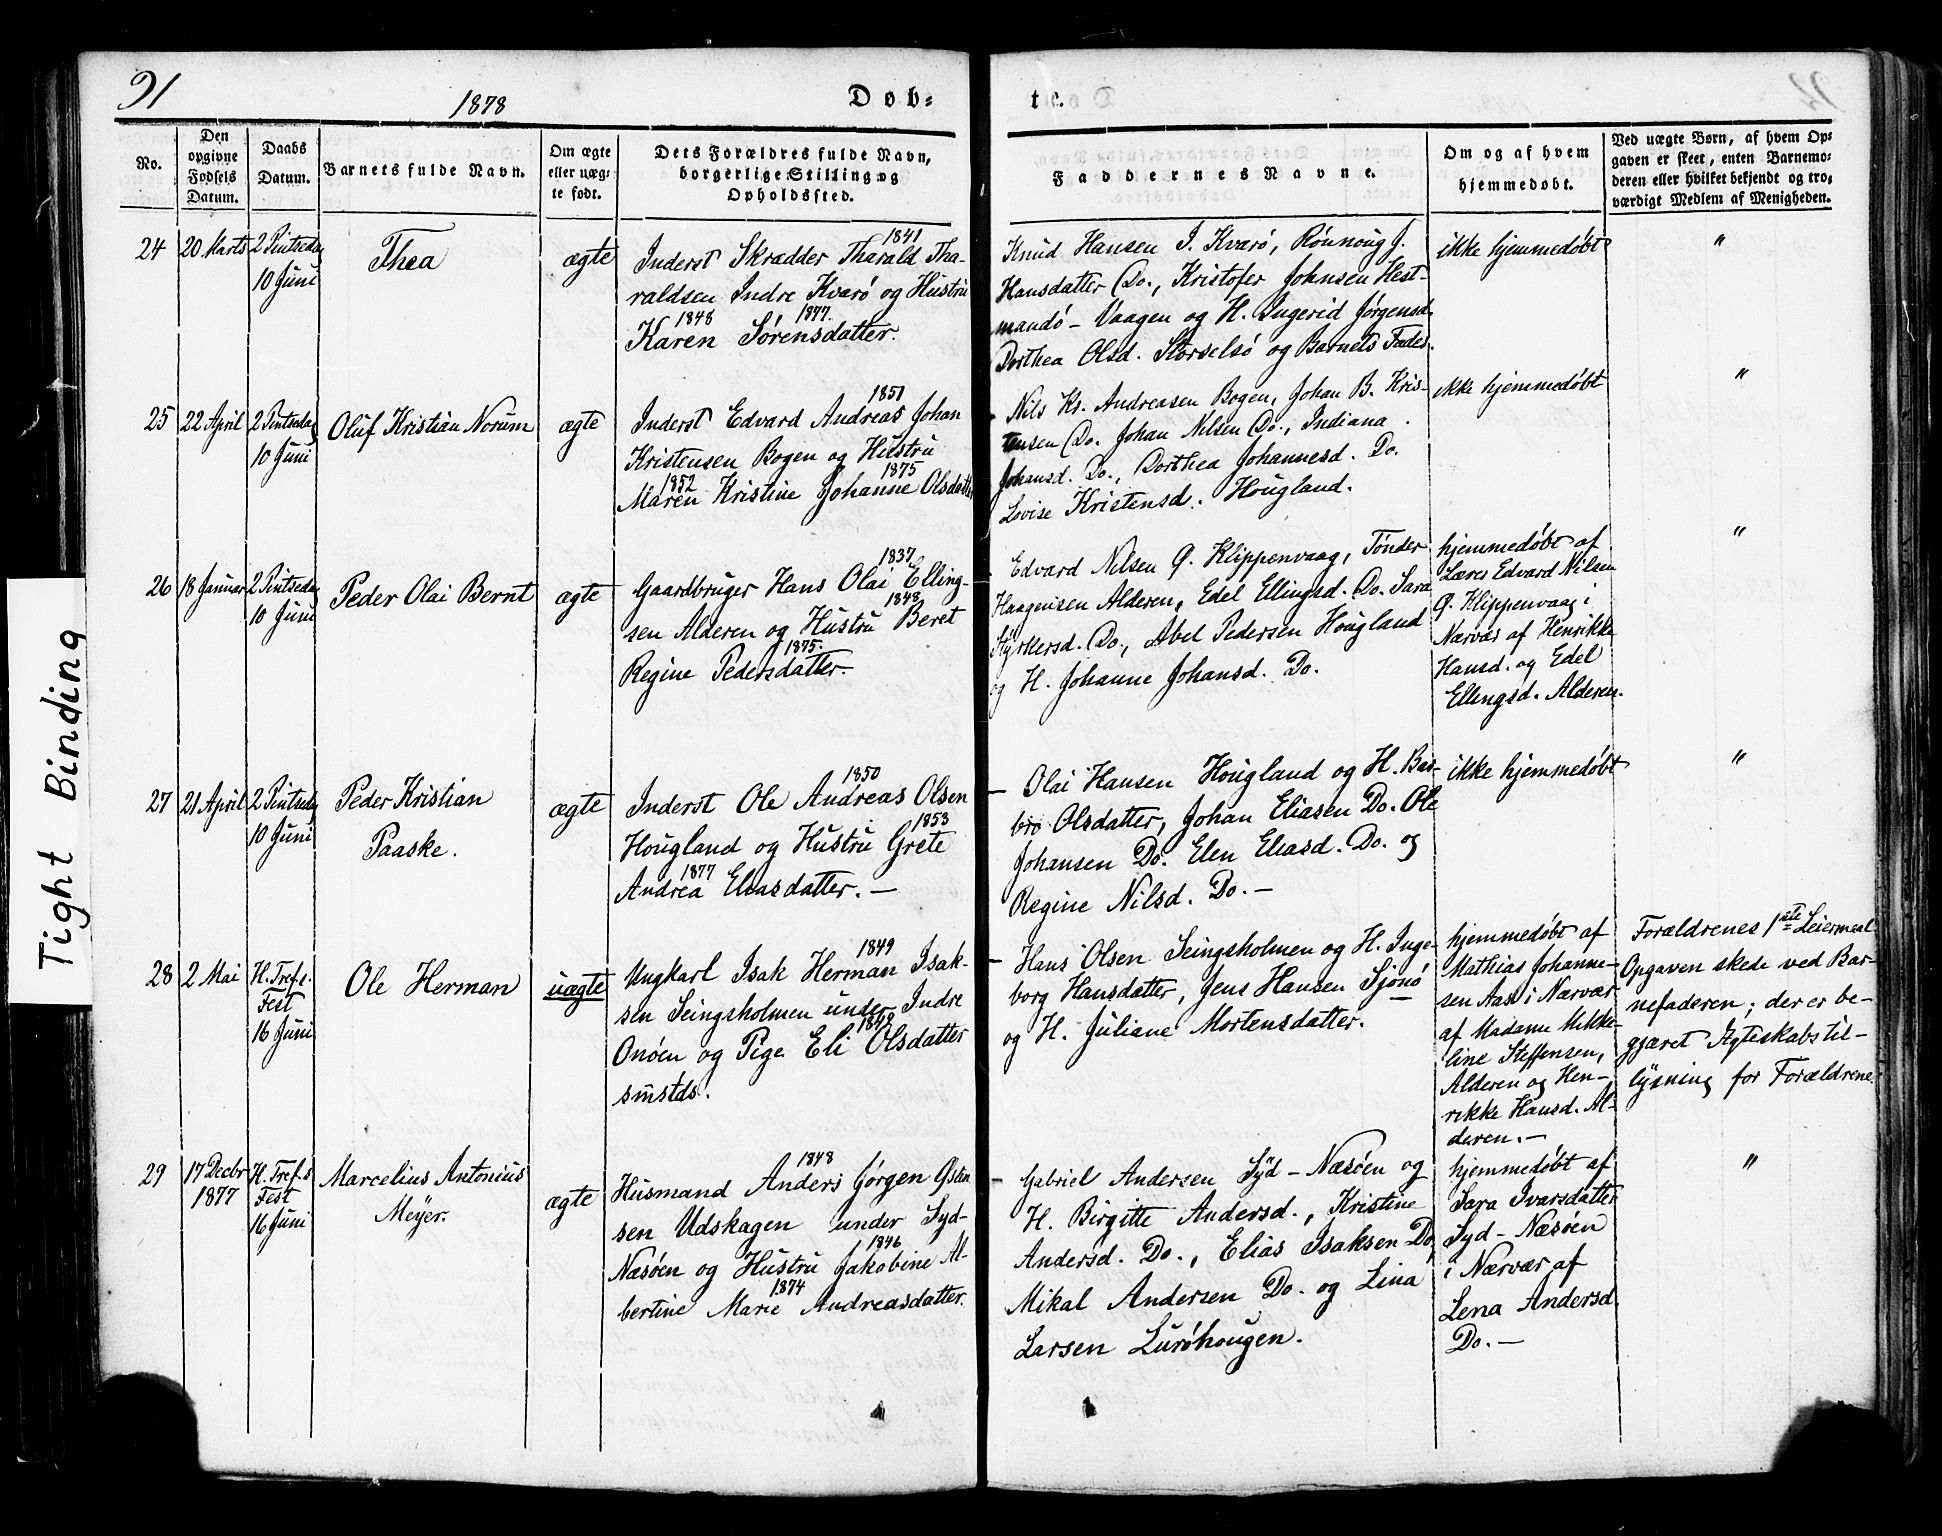 91
1878
Døb-
te.
No.
Den opgivne Fødsels Datum.
Daabs Datum.
Barnets fulde Navn.
Om ægte eller uæg-te født.
Dets Forældres fulde Navn, borgerlige Stilling og Opholdssted.
Faddernes Navne.
Om og af hvem hjemmedøbt.
Ved uægte Børn, af hvem Op-gaven er skeet, enten Barnemo-deren eller hvilket bekjendt og tro-værdigt Medlem af Menigheden.
24
20 Marts
2 Pintsedag
10 Juni
Thea
ægte
1841
Inderst Skrædder Tharald Tha-
raldsen Indre Kvarö og Hustru
1848 1877.
Karen Sörensdatter.
Knud Hansen I. Kvarö, Rönnoug J.
Hansdatter Do., Kristofer Johnsen Hest-
mandö - Vaagen og H. Ingerid Jörgensd.
Dorthea Olsd. Storselsö og Barnets Fader.
ikke hjemmedöbt
"
25
22 April
2 Pintsedag
10 Juni
Oluf Kristian Norum
ægte
1851
Inderst Edvard Andreas Johan
Kristensen Bogen og Hustru
1852 1875
Maren Kristine Johanne Olsdatter
- Nils Kr. Andreasen Bogen, Johan B. Kris-
tensen Do. Johan Nilsen Do., Indiana
Johansd. Do., Dorthea Johannesd. Do.
Lovise Kristensd. Hougland.
ikke hjemmedöbt
"
26
18 Januar
2 Pintsedag
10 Juni
Peder Olai Bernt
ægte
1837
Gaardbruger Hans Olai Elling-
1848
sen Alderen og Hustru Beret
1875.
Regine Pedersdatter.
- Edvard Nilsen Q. Klippenvaag, Tönder
Haagensen Alderen, Edel Ellingsd. Do. Sara
Styrkersd. Do., Abel Pedersen Hougland
og H. Johanne Johansd. Do.
hjemmedöbt af
Lærer Edvard Nilsen
Q. Klippenvaag i
Nærvær af Henrikke
Hansd. og Edel
Ellingsd. Alderen.
"
27
21 April
2 Pintsedag
10 Juni
Peder Kristian
Paaske.
ægte
1850
Inderst Ole Andreas Olsen
1853
Hougland og Hustru Grete
1877
Andrea Eliasdatter. -
- Olai Hansen Hougland og H. Bar-
bro Olsdatter, Johan Eliasen Do. Ole
Johansen Do. Elen Eliasd. Do. og
Regine Nilsd. Do. -
ikke hjemmedöbt
"
28
2 Mai
H. Tref.s
Fest
16 Juni
Ole Herman
uægte
1849
Ungkarl Isak Herman Isak-
sen Seingsholmen under Indre
1849
Onöen og Pige Eli Olsdatter
smstds.
- Hans Olsen Seingsholmen og H. Inge-
borg Hansdatter, Jens Hansen Sjonö
og H. Juliane Mortensdatter.
hjemmedöbt af
Mathias Johanne-
sen Aase i Nærvær
af Madame Mikke-
line Steffensen,
Alderen og Hen-
rikke Hansd. Al-
deren. -
Forældrenes 1ste Leiermaal
Opgaven skede ved Bar-
nefaderen; der er be-
gjæret Ægteskabstil-
lysning for Forældrene.
29
17 Decbr
1877
H. Tref.s
Fest
16 Juni
Marcelius Antonius
Meÿer.
ægte
1848
Husmand Anders Jörgen Østen
sen Udskagen under Syd-
1846
Næsöen og Hustru Jakobine Al-
1874
bertine Marie Andreasdatter.
- Gabriel Andersen Syd-Næsöen og
H. Birgitte Andersd., Kristine
Andersd. Do., Elias Isaksen Do.
Mikal Andersen Do. og Lina
Larsen Luröhougen.
hjemmedöbt af
Sara Ivarsdatter
Syd-Næsöen
i Nærvær af
Lena Andersd.
Do. -
"
Tight Binding